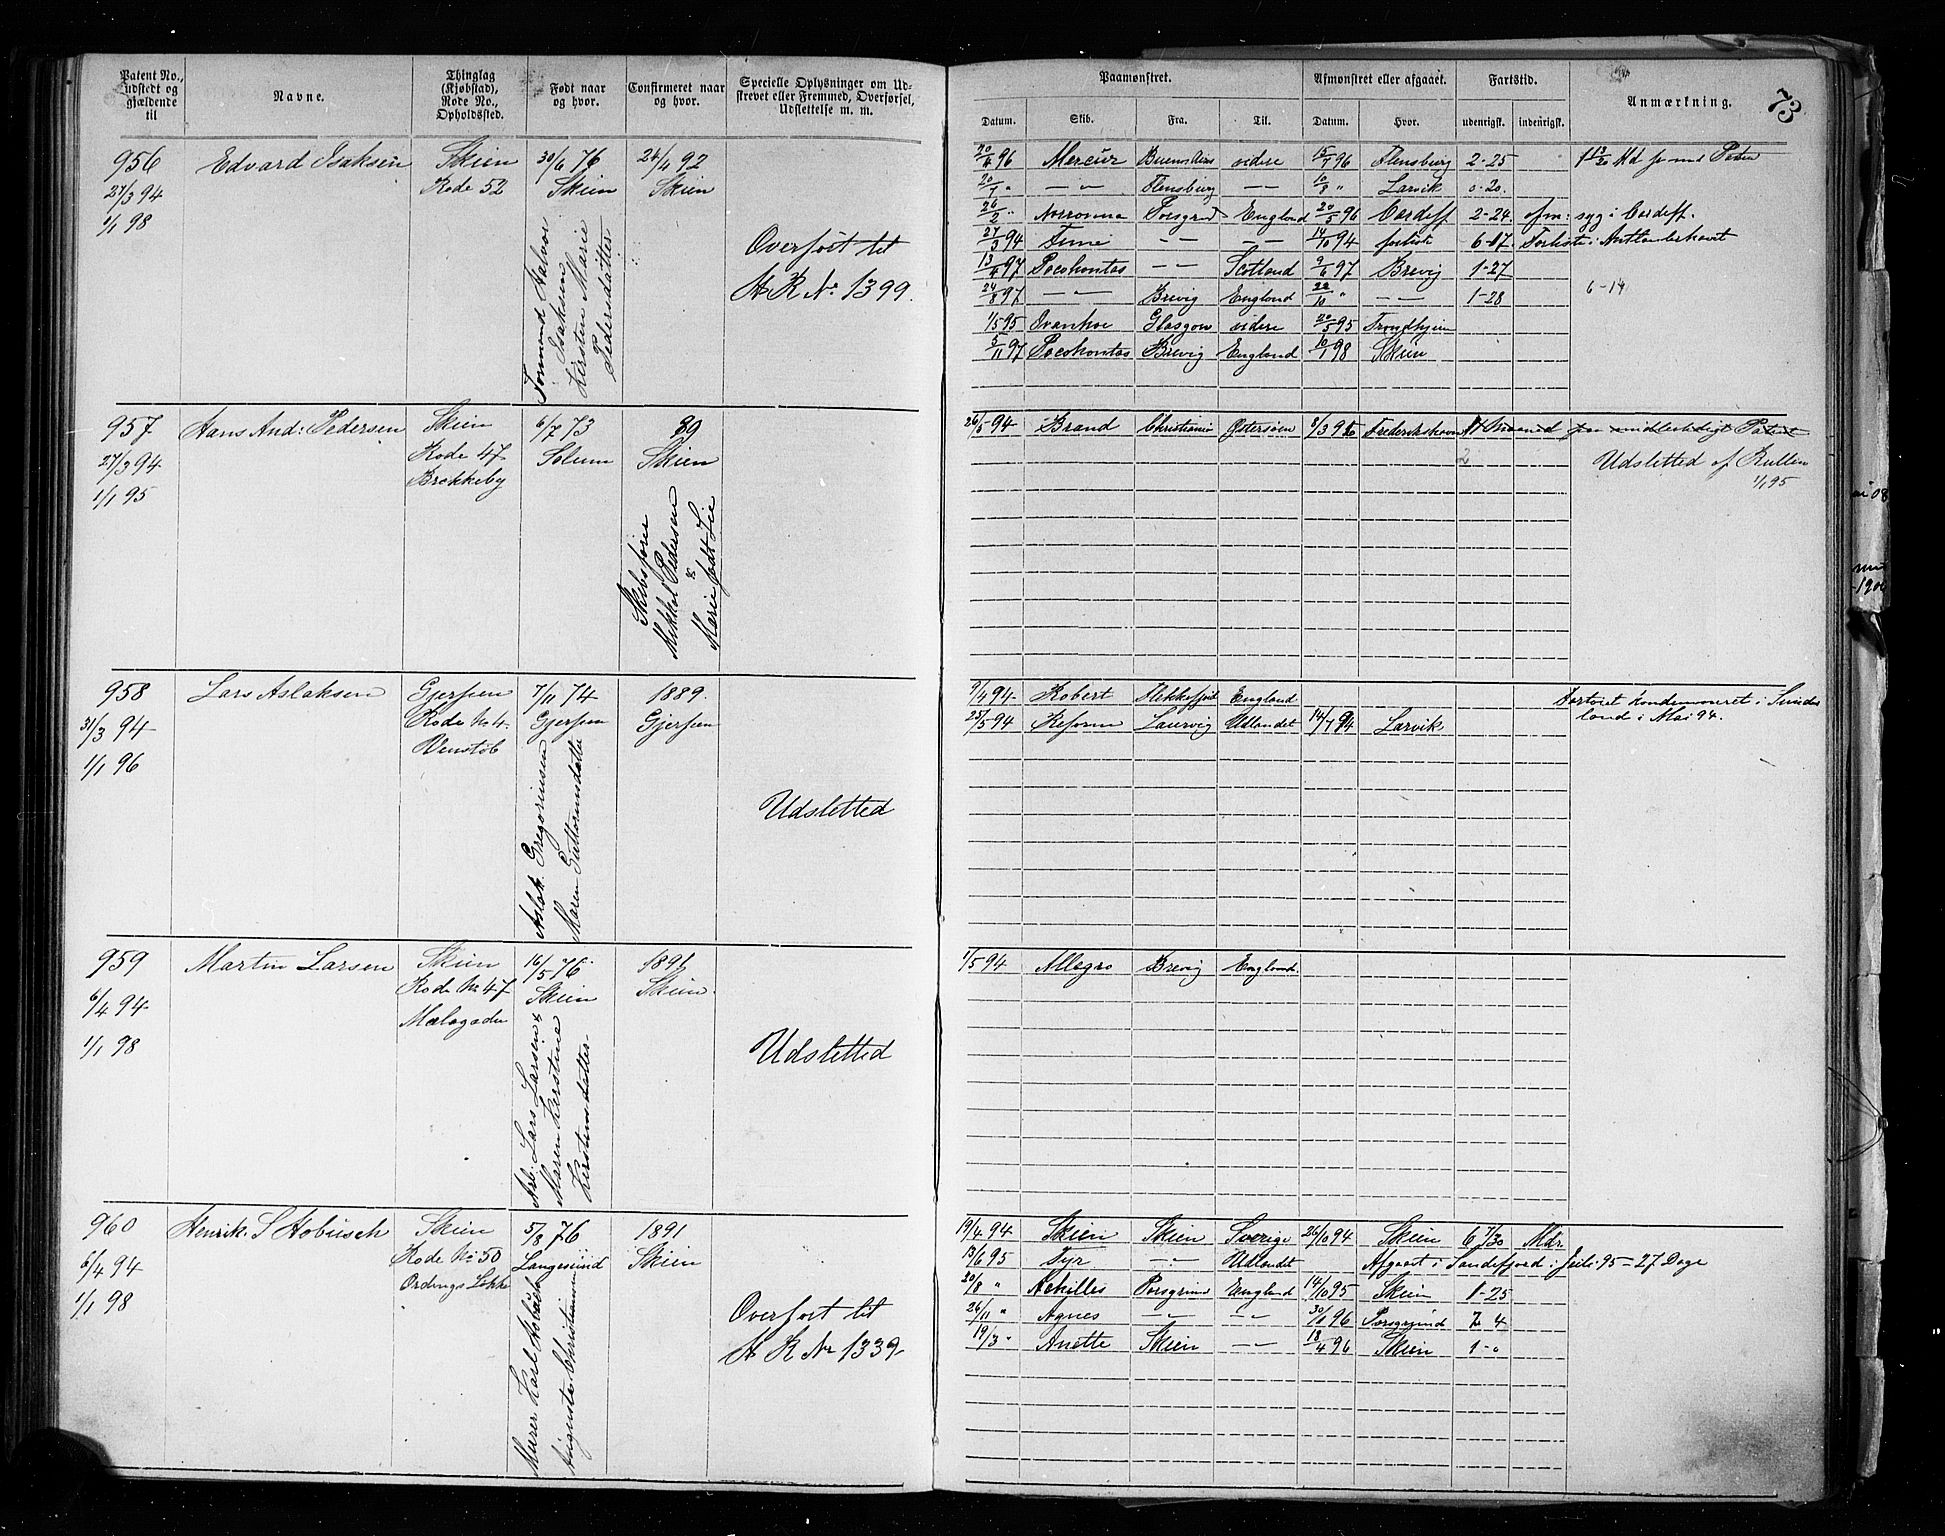 Patent No., udstedt og gjældende til
Navne.
Thinglag (Kjøbstad), Rode No., Opholdssted.
Født naar og hvor.
Confirmeret naar og hvor.
Specielle Oplysninger om Udstrevet eller Fremmed, Overførsel, Udslettelse m. m.
Paamønstret.
Afmønstret eller afgaaet.
Fartstid.
Anmærkning.
73
Datum. Skib. Fra. Til. Datum. Hvor. udenrigsk. indenrigsk.
956
27/3 94
1/1 98
Edvard Isaksen
Skien
Rode 52
30/6 76
Skien
24/4 92
Skien
Isaksen
Kirsten Marie
Pedersdatter
Overført til
A R No 1399.
20/4 96 Mercur Buenos Aires videre 15/7 96 Flensburg 2-25
20/7 " — " — Flensburg — — 10/8 " Larvik 0-20.
26/2 " Norrønna Porsgrund England 20/5 96 Cardiff 2-24. afm: syg i Cardiff.
27/3 94 — — — — 14/10 94 forliste 6-17.
13/4 97 Pocohontas — — Scotland 9/6 97 Brevig 1-27
24/8 97 — — Brevig England 22/10 " — — 1-28
6-14
1/5 95 Ovanhoe Glasgow videre 20/5 95 Trondhjem
5/11 97 Pocohontas Brevig England 10/1 98 Skien
957
27/3 94
1/1 95
Hans And: Pedersen
Skien
Rode 47
Brekkeby
6/7 73
Solum
89
Skien
Mikkel Pedersen
&
Marie født Lie
26/5 94 Brand Christiania Østersøen 8/3 96 Frederikshavn
2
Udsletted af Rullen
1/1 95
958
31/3 94
1/1 96
Lars Aslaksen
Gjerpen
Rode No 4.
Venstøb
7/11 74
Gjerpen
1889.
Gjerpen
Aslak Gregoriussen
Maren Guttormsdatter
Udslettet
9/4 94 Robert Flekkefjord England
23/5 94 Reform Laurvig Udlandet 14/7 94 Larvik
Fartøiet kondemneret i
land i Mai 94.
959
6/4 94
1/1 98
Martin Larsen
Skien
Rode No 47
Mælagada
16/5 76
Skien
1891
Skien.
Arb. Lars Larsen &
Maren Kirstine
Kirstensdatter
Udslettet
1/5 94 Allegro Brevig England.
960
6/4 94
1/1 98
Henrik. S Hobusch
Skien
Rode No 50
Ordnings Løkke
5/8 76
Langesund
1891
Skien
Murer Karl
Auguste Christiansen
Overført til
A R No 1339.
19/4 94 Skien Skien Sverige 26/10 94 Skien 6 7/30 Mdr.
13/6 95 Tyr — " — Udlandet Afgaaet i Sandefjord i Juli 95 = 27 Dage
20/8 " Achilles Porsgrund England 14/10 95 Skien 1-25
26/11 " Agnes — — — — 30/1 96 Porsgrund 2 4
19/3 " Anette Skien — — 18/4 96 Skien 1-"